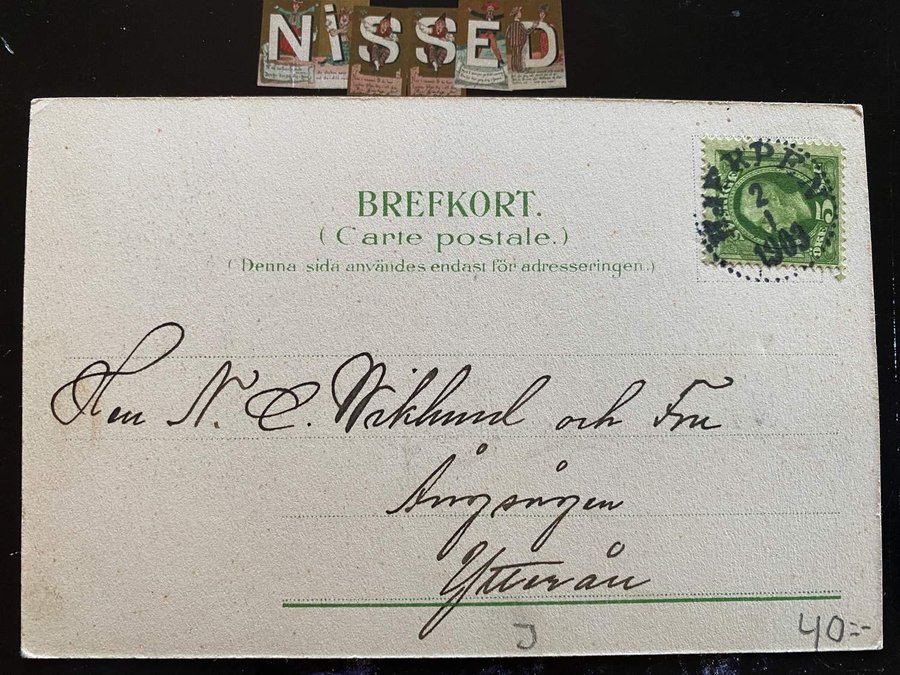 NiSSED
BREFKORT.
(Carte postale.)
(Denna sida användes endast för adresseringen.)
2
1
1903
5
ÖRE
Herr N. C. Wiklund och Fru
Ångsågen
Ytterån
J
40:-